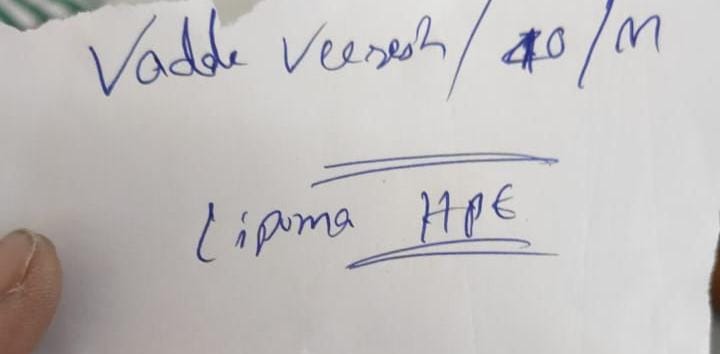 Vadde Veeresh / 40 / M
Lipoma HPE